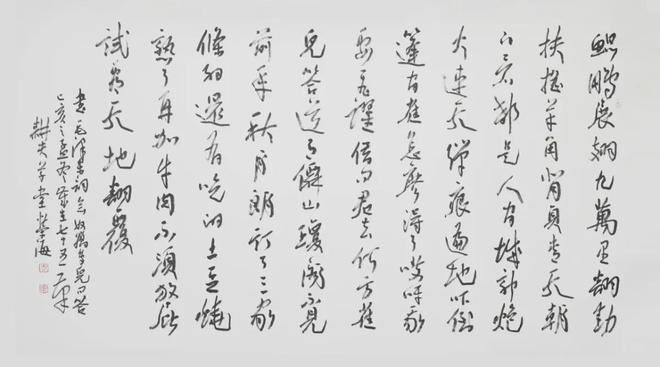 鲲鹏展翅九萬里翻動
扶搖羊角背負青天朝
下看都是人間城郭炮
火連天彈痕遍地吓倒
蓬間雀怎麼得了哎呀我
要飛躍借問君去何方雀
兒答道有僊山瓊閣不見
前年秋月朗訂了三家
條約還有吃的土豆燒
熟了再加牛肉不須放屁
試看天地翻覆
書毛澤東詞念奴嬌鳥兒問答
己亥之孟冬七十五
耕夫草堂海